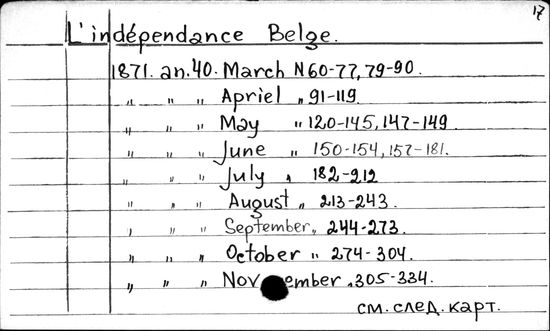 17
L'indépendance Belge.
1871. an.40. March N 60-77, 79-90.
„ „ „ Apriel „ 91-119.
„ „ „ May „ 120-145, 147-149.
„ „ „ June „ 150-154, 157-181.
„ „ „ July „ 182-212
„ „ „ August „ 213-243.
„ „ „ September „ 244-273.
„ „ „ October „ 274-304.
„ „ „ November „ 305-334.
см. след. карт.